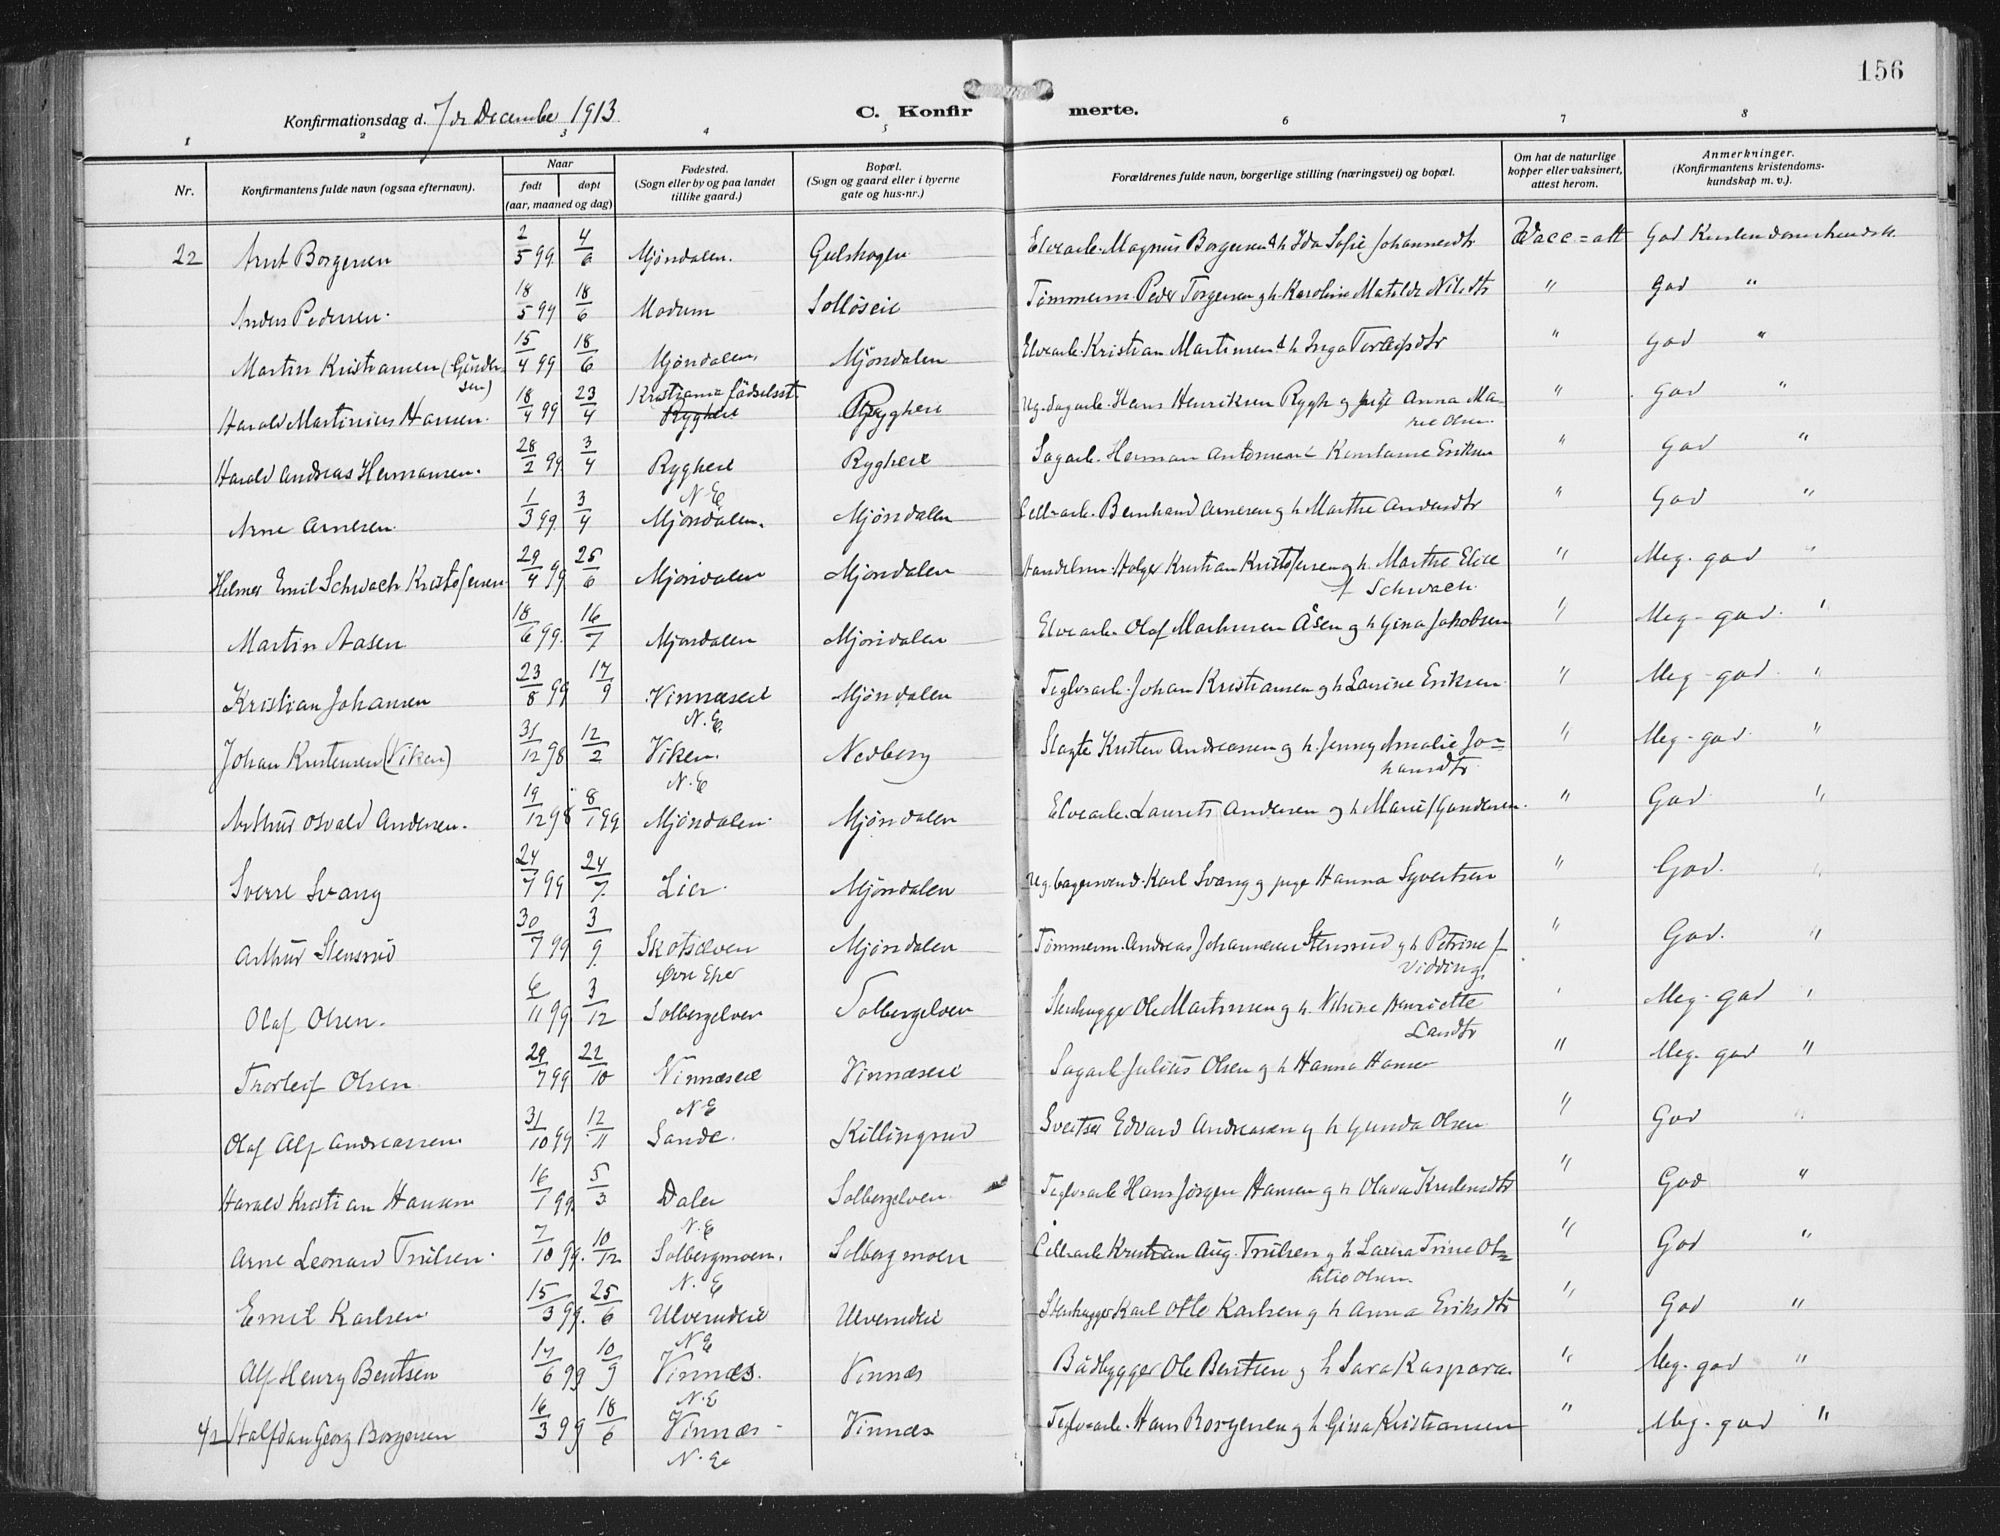 156
Konfirmationsdag d. 7de December 1913
C. Konfirmerte.
1 2 3 4 5 6 7 8
Nr. Konfirmantens fulde navn (ogsaa efternavn). Naar født døpt (aar, maaned og dag) Fødested. (Sogn eller by og paa landet tillike gaard.) Bopæl. (Sogn og gaard eller i byerne gate og hus-nr.) Forældrenes fulde navn, borgerlige stilling (næringsvei) og bopæl. Om hat de naturlige kopper eller vaksinert, attest herom. Anmerkninger. (Konfirmantens kristendomskundskap m. v.).
22 Arnt Borgersen 2/5 99 4/6 Mjøndalen. Gulskogen Elvearb. Magnus Borgersen & h Ida Sofie Johannesdtr Vacc = att God Kristendomskundsk.
Anders Pedersen. 18/5 99 18/6 Modum Solløseie Tømmerm. Peder Torgersen og h. Karoline Matilde Nilsdtr " God "
Martin Kristiansen (Gundersen) 15/4 99 18/6 Mjøndalen, Mjøndalen Elvearb. Kristian Martinsen & h Inga " God "
Harald Martinius Hansen. 18/4 99 23/4 Kristiania fødselsst. Ryghere Ryghere Ug. Sagarb. Hans Henriksen Rygh og pige Anna Marie Olsen. " God "
Harald Andreas Hermansen. 28/2 99 3/4 Ryghere N.E Ryghere Sagarb. Herman Antonsen & Konstanse Eriksen " God "
Arne Arnesen. 1/3 99 3/4 Mjøndalen. Mjøndalen Cell.arb. Bernhard Arnesen og h Marthe Andersdtr " God "
Helmer Emil Schwach Kristofersen 29/4 99 25/6 Mjøndalen Mjøndalen Handelsm. Holger Kristian Kristofersen og h. Marthe Elise f Schwach. " Meg. god "
Martin Aasen 18/6 99. 16/7 Mjøndalen Mjøndalen Elvearb. Olaf Mathisen Åsen og h Gina Jakobsen " Meg - god. "
Kristian Johansen 23/8 99 17/9 Vinnæseie N.E. Mjøndalen Teglv.arb. Johan Kristiansen og h Laurine Eriksen " Meg - god. "
Johan Kristensen (Viken) 31/12 98 12/2 Viken. N.E Nedberg Slagte Kristen Andreassen og h. Jenny Amalie Johansdtr " Meg - god. "
Arthur Osvald Andersen. 19/12 98 8/1 99 Mjøndalen. Mjøndalen Elvearb. Laurits Andersen og h Marie Gundersen. " God "
Sverre Svang 24/7 99 24/7. Lier. Mjøndalen Ug. bagersvend. Karl Svang og pige Hanna Syvertsen " God. "
Arthur Stensrud 30/7 99 3/9. Skotselven Øvre Eker Mjøndalen Tømmerm. Andreas Johannesen Stensrud og h Petrine f Vidding. " God. "
Olaf Olsen. 6/11 99 3/12 Solbergelven Solbergelven Stenhugger Ole Martinsen og h. Nilsine Henriette Larsdtr ' Meg - god '
Thorleif Olsen 29/7 99 22/10 Vinnæseie N E Vinnæseie Sagarb Julius Olsen og h Hanna Hansen " Meg. god "
Olaf Alf Andreassen 31/10 99 12/11 Sande. Killingrud Sveitser Edvard Andreasen og h Gunda Olsen " God "
Harald Kristian Hansen 16/1 99. 5/3 Daler N.E Solbergelven. Teglv.arb Hans Jørgen Hansen og h Olava Kristensdtr " God "
Arne Leonard Trulsen. 7/10 99. 10/12 Solbergmoen. N. E Solbergmoen Cell.arb Kristian Aug. Trulsen og h Laura Trine Otilie Olsen. " God "
Emil Karlsen 15/3 99. 25/6 Ulverudeie N E Ulverudeie Stenhugger Karl Otto Karlsen og h Anna Eriksdtr " God "
Alf Henry Bentsen 17/6 99 10/9 Vinnæs. N.E Vinnæs Bådbygger Ole Bentsen og h Sara Kaspara " Meg - god "
42 Halfdan Georg Borgersen 16/3 99 18/6 Vinnæs - N.E. Vinnæs Teglv.arb. Hans Borgersen og h Gina Kristiansen " Meg - god "